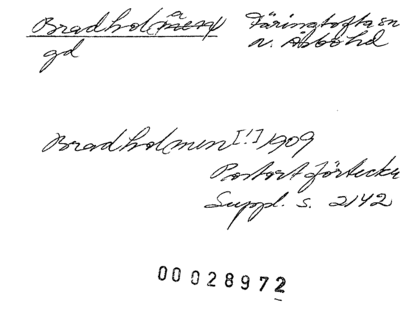 Bradholma Färingtofta sn
gd n. Åsbohd
Bradholmen [!] 1909
Postortförteckn
Suppl. s. 2142
00028972